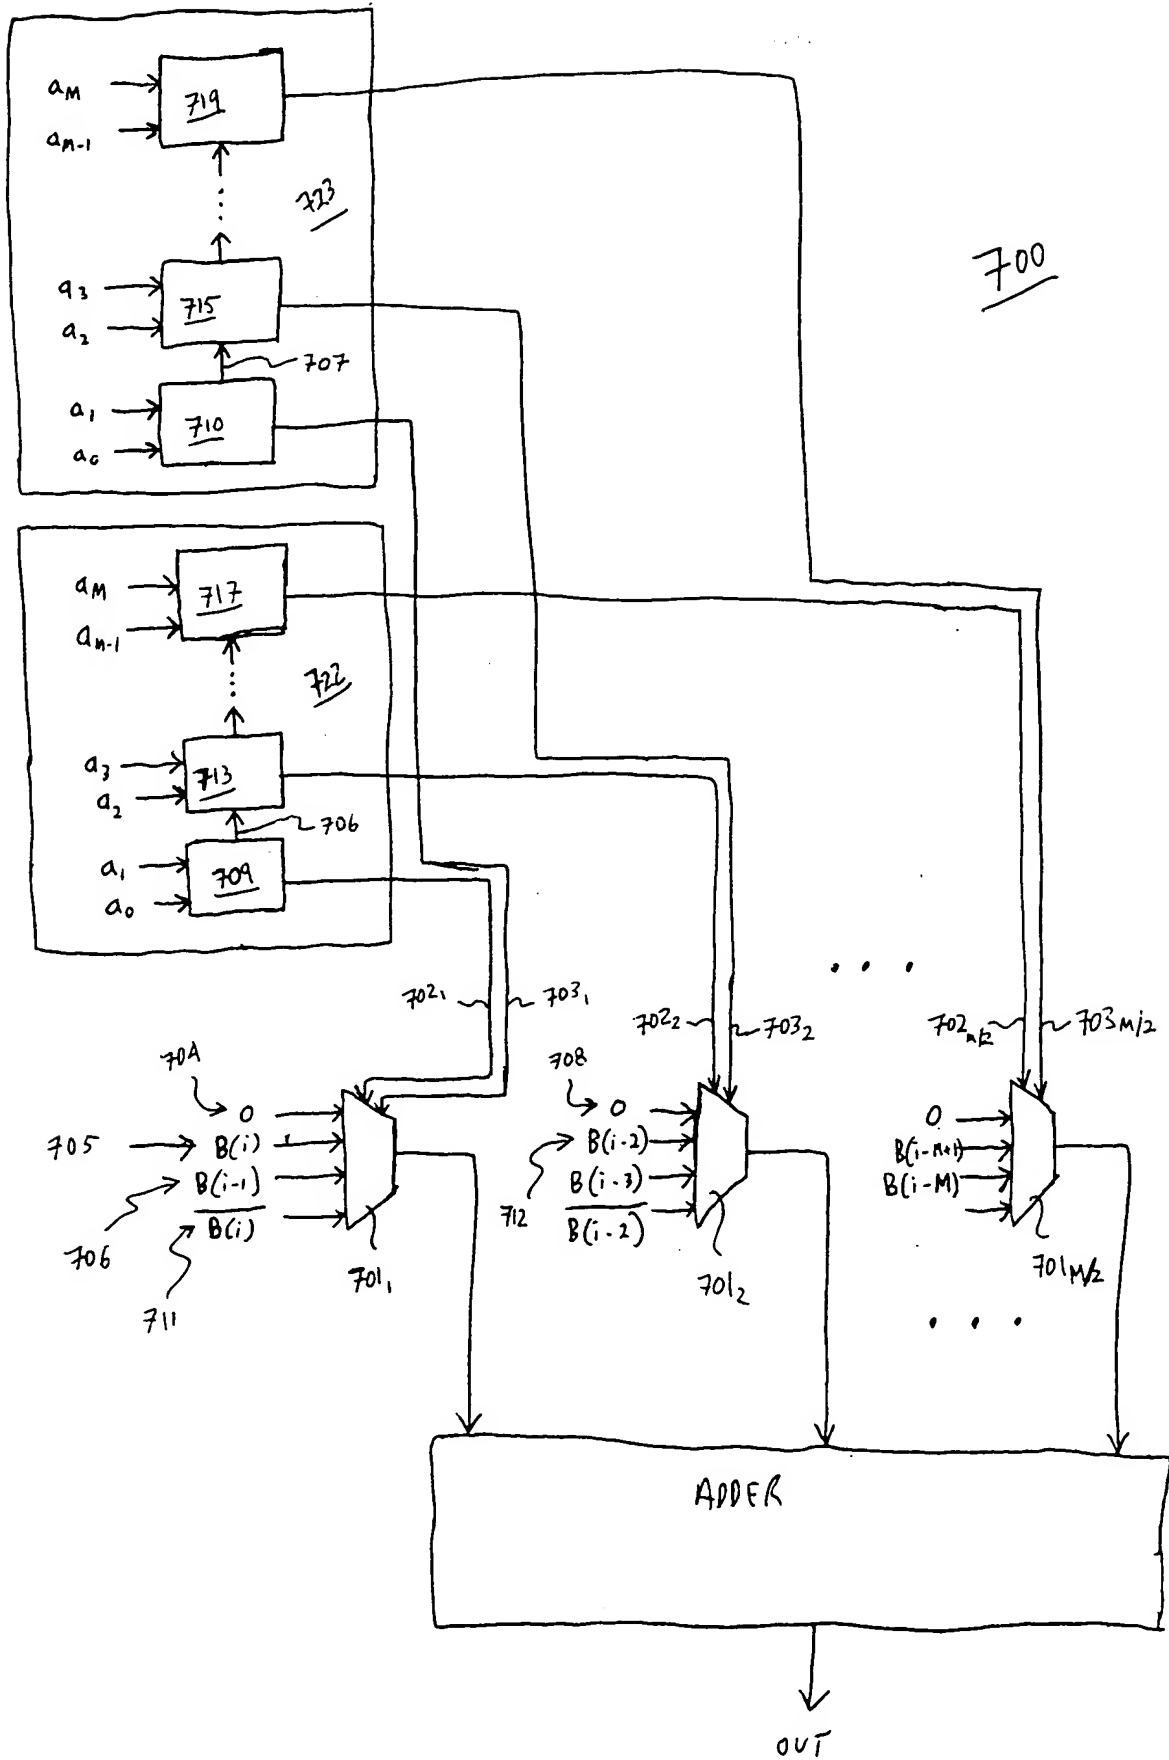 a_M
719
a_M-1
723
700
a_3
715
a_2
707
a_1
710
a_0
a_M
717
a_M-1
722
a_3
713
a_2
706
a_1
709
a_0
702_1
703_1
702_2
703_2
702_M/2
703_M/2
704
0
705
B(i)
B(i-1)
B̅(̅i̅)̅
706
711
701_1
708
0
B(i-2)
B(i-3)
B̅(̅i̅-̅2̅)̅
712
701_2
0
B(i-M+1)
B(i-M)
701_M/2
ADDER
OUT